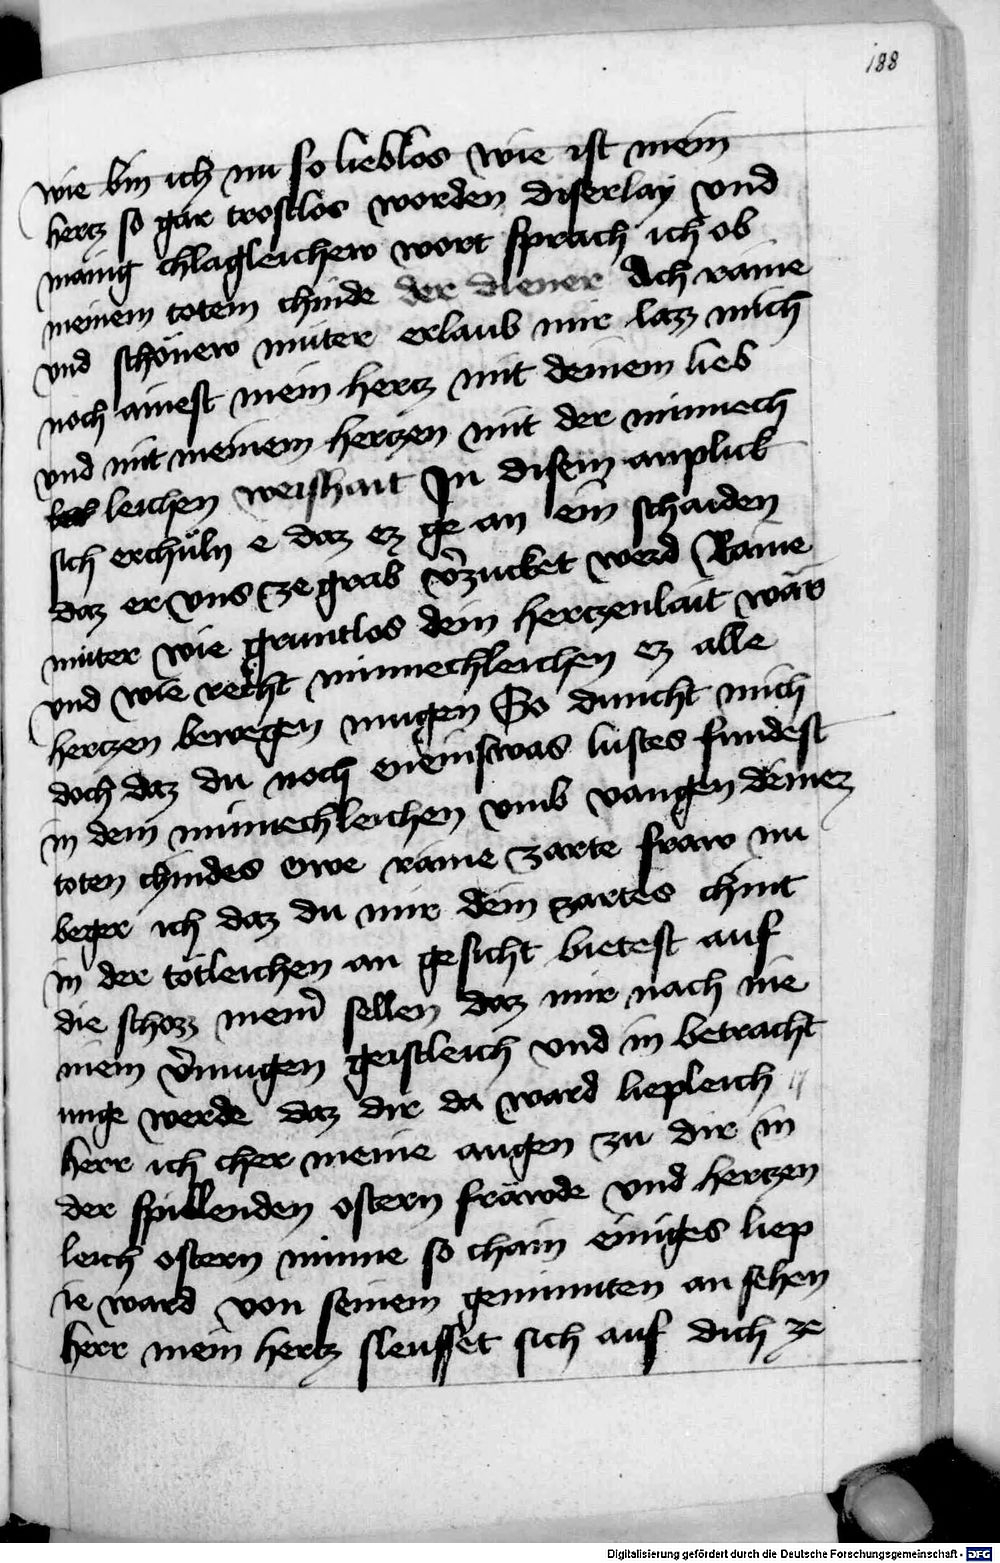 188
wie bin ich nu so lieblos wie ist mein
hertz so gar trostlos worden diserlay vnd
mänig chlagleichew wort sprach ich ob
meinem totem chinde der diener Ach raine
vnd schönew muter erlaub mir laz mich
noch ainest mein hertz mit deinem lieb
vnd mit meinem hertzen mit der minnech
leichen weishait In disem anplick
sich erchüln e daz ez ge an ein schaiden
daz er vns ze grab v̄zucket werd Raine
muter wie gruntlos dein hertzenlait wär
vnd wie recht minnechleichen ez alle
hertzen bewegen mugen So duncht mich
doch daz du noch lustes fundest
in dem minnechleichen vmb vangen deinez
toten chindes Owe raine zarte fraw nu
beger ich daz du mir dein zartes chint
in der tötleichen an gesicht bietest auf
die schozz mein̄ sellen daz mir nach me
niem v̄mugen geistleich vnd in betracht
unge werde daz dir da ward liepleich
herr ich cher meine augen zu dir in
der spillenden ostern fräwde vnd hertzen
leich ostern minne so chain einiges liep
ie ward von seinem geminnten an sehen
herr mein hertz sleusset sich auf dich ze
Digitalisierung gefördert durch die Deutsche Forschungsgemeinschaft - DFG